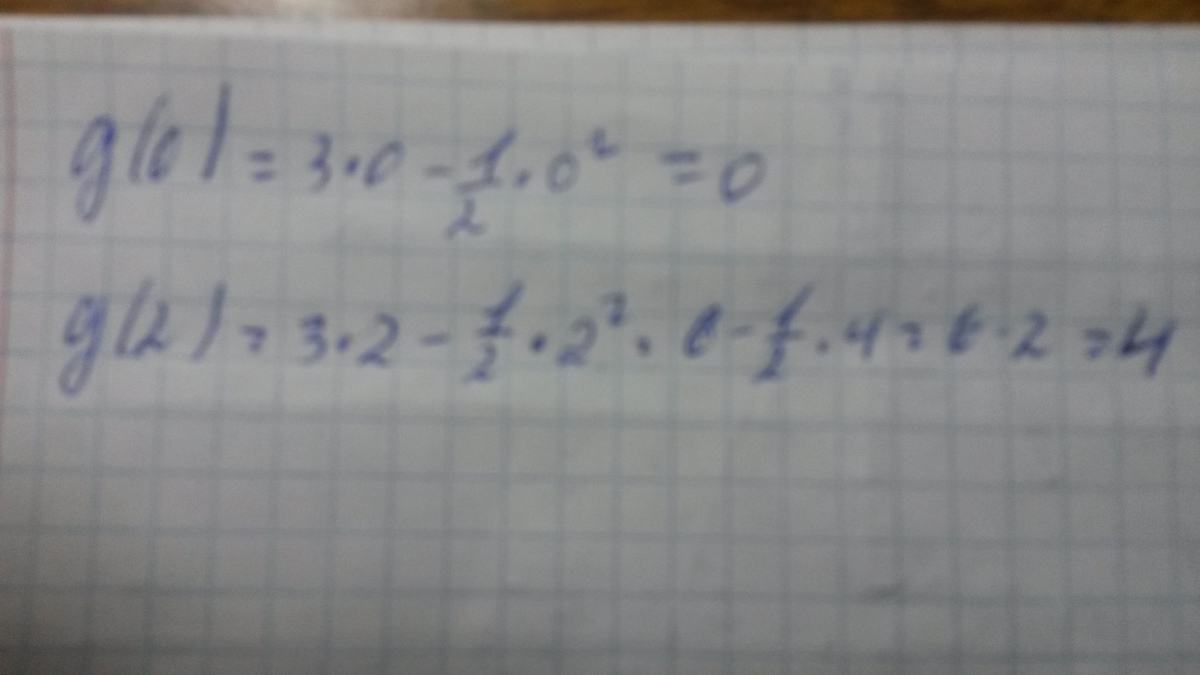 g(0) = 3·0 - 1/2 · 0² = 0
g(2) = 3·2 - 1/2 · 2² = 6 - 1/2 · 4 = 6 - 2 = 4